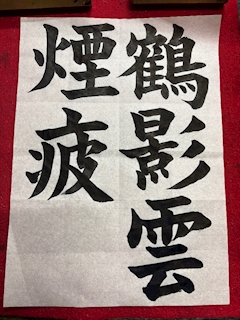 鶴影雲
煙疲